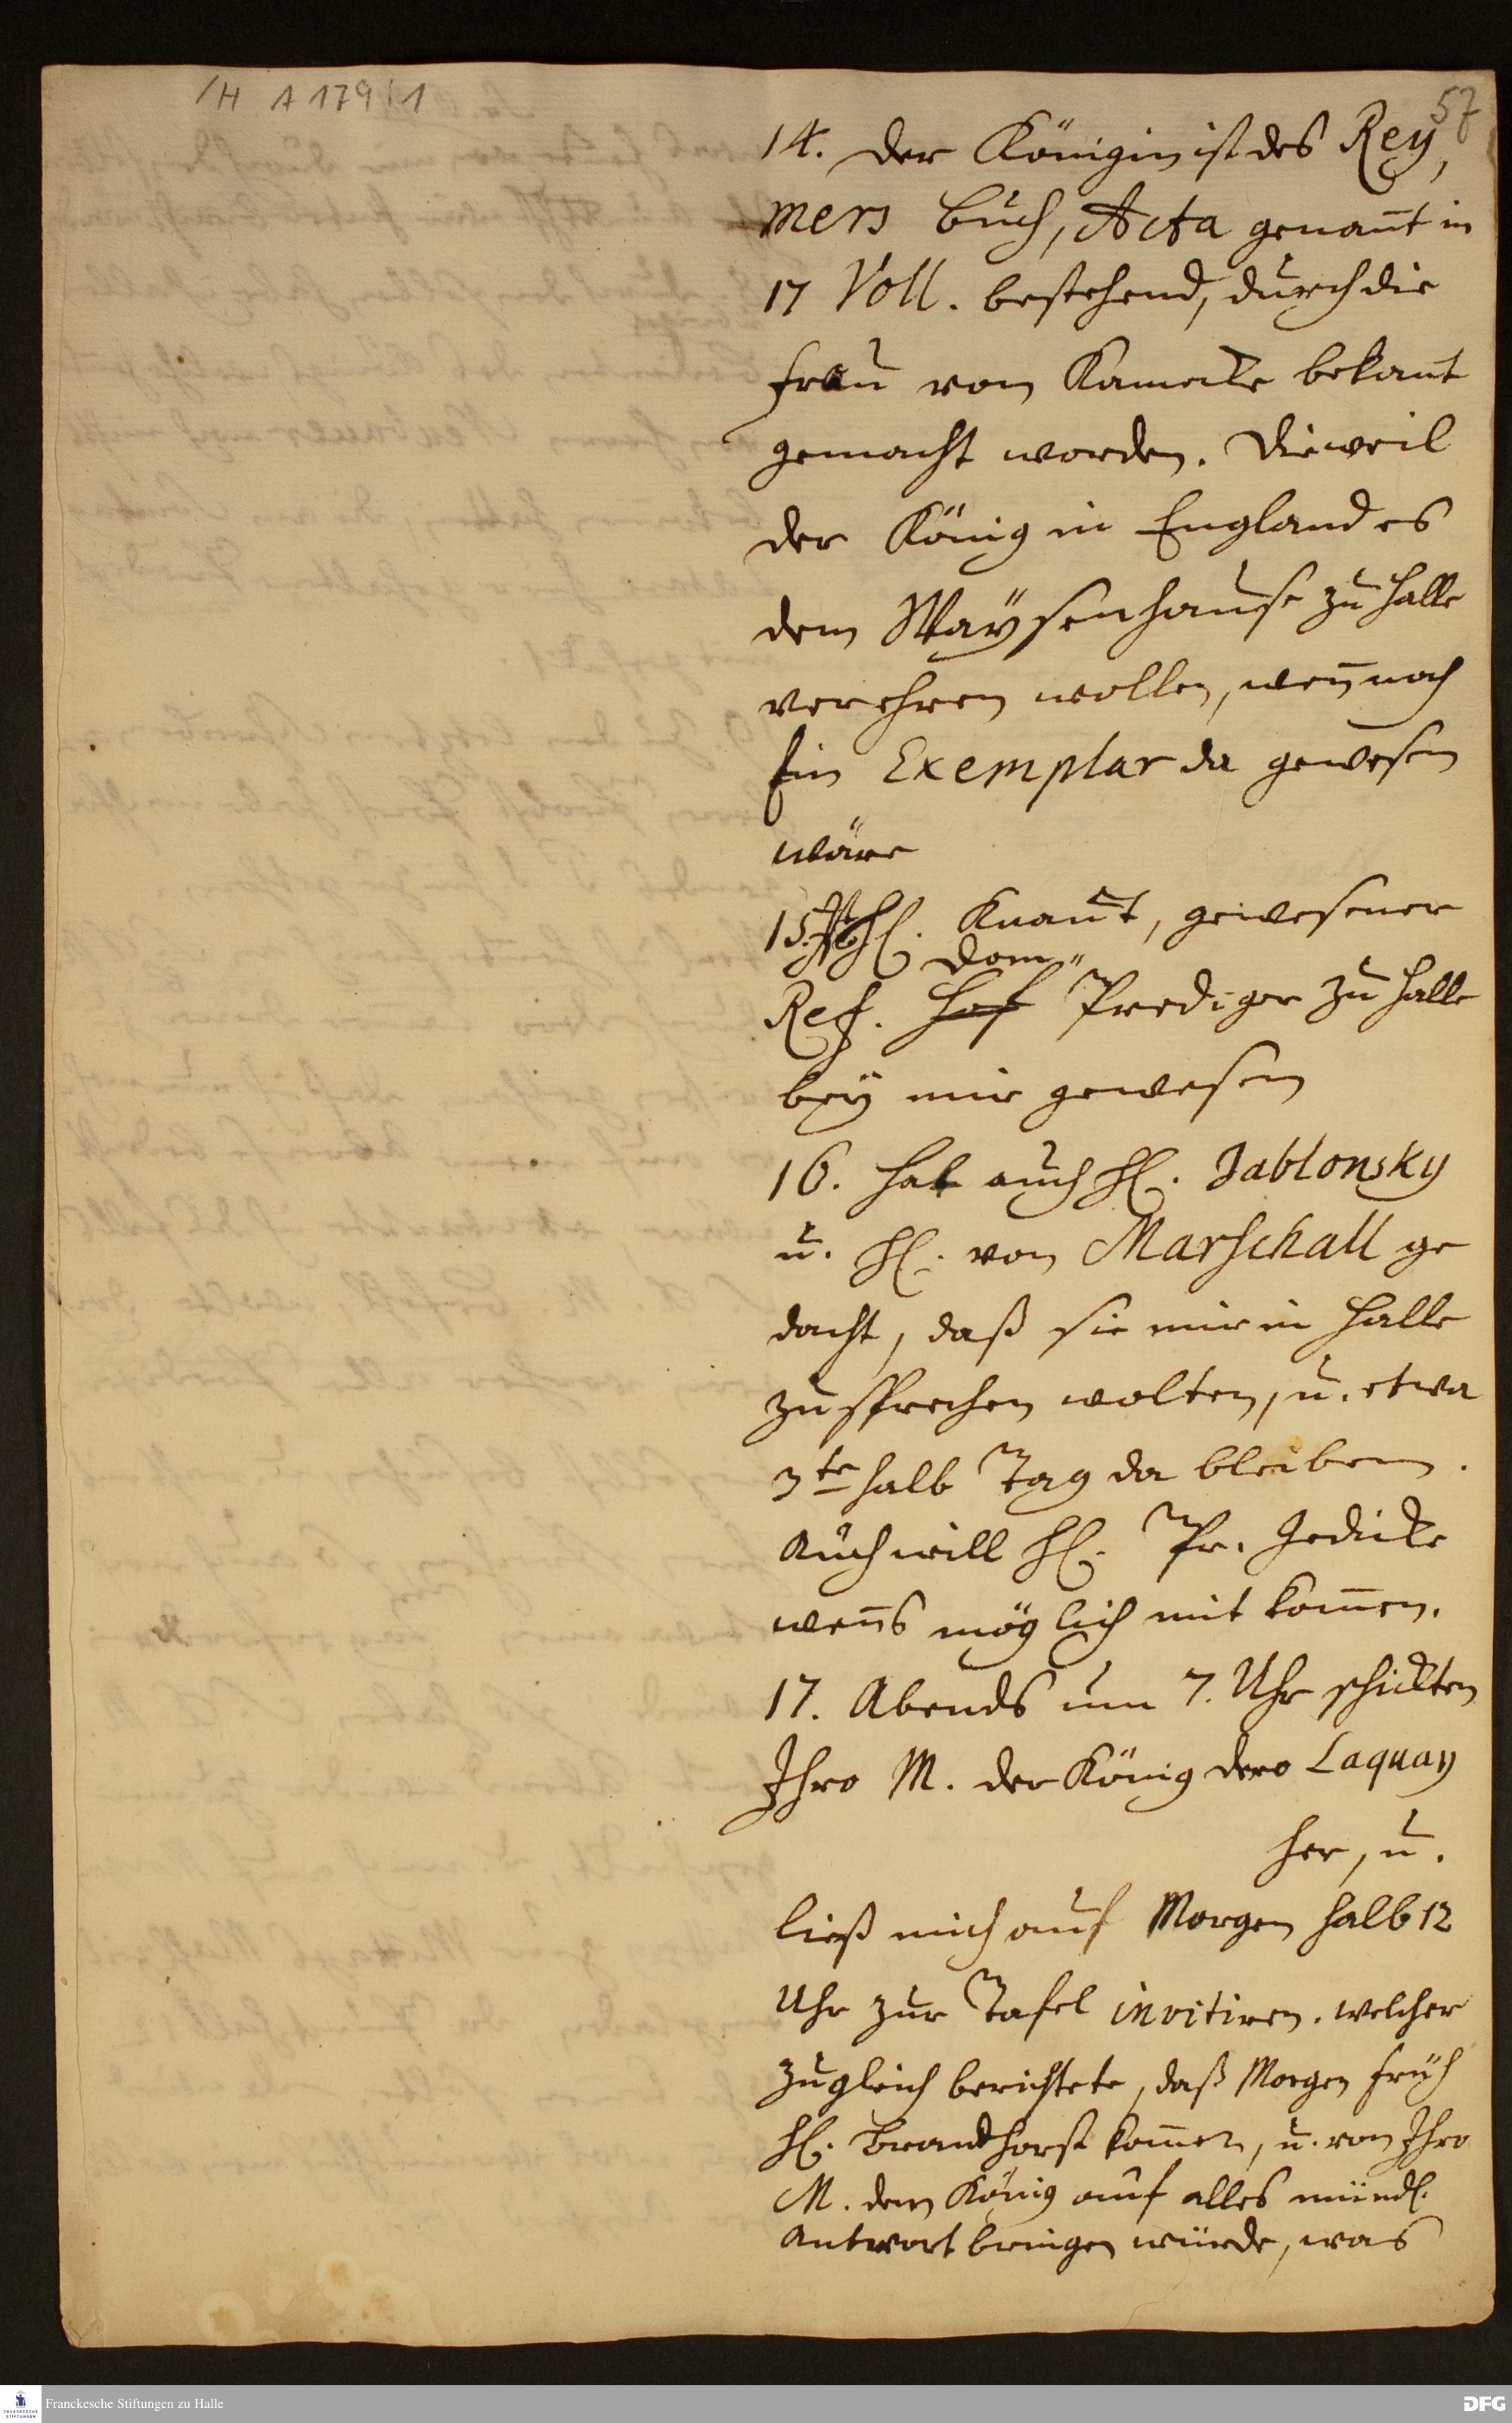 /H A 179 : 1
57
14. der Königin ist des Rey,
mers buch, Acta genan̄t in
17 Voll. bestehend, durch die
frau von Kamecke bekant
gemacht worden. Dieweil
der König in England es
dem Waÿsenhause zu Halle
verehren wollen, wen̄ noch
Ein Exemplar da gewesen
wäre
15. H. Knaut, gewesener
Dom"
Ref. Hof Prediger zu Halle
beÿ mir gewesen
16. hat auch H. Jablonsky
u. H. von Marschall ge
dacht, daß sie mir in Halle
zusprechen wolten, u. etwa
3te halb Tag da bleiben.
Auch will H. Pr. Jedicke
wen̄s möglich mit kom̄en.
17. Abends um 7. Uhr schickten
Ihro M. der König dero Laquay
her, u.
ließ mich auf Morgen halb 12
Uhr zur Tafel invitiren. welcher
zugleich berichtete, daß Morgen früh
H. Brandhorst kom̄en, u. von Ihro
M. dem König auf alles mündl.
Antwort bringen würde, was
Franckesche Stiftungen zu Halle
DFG